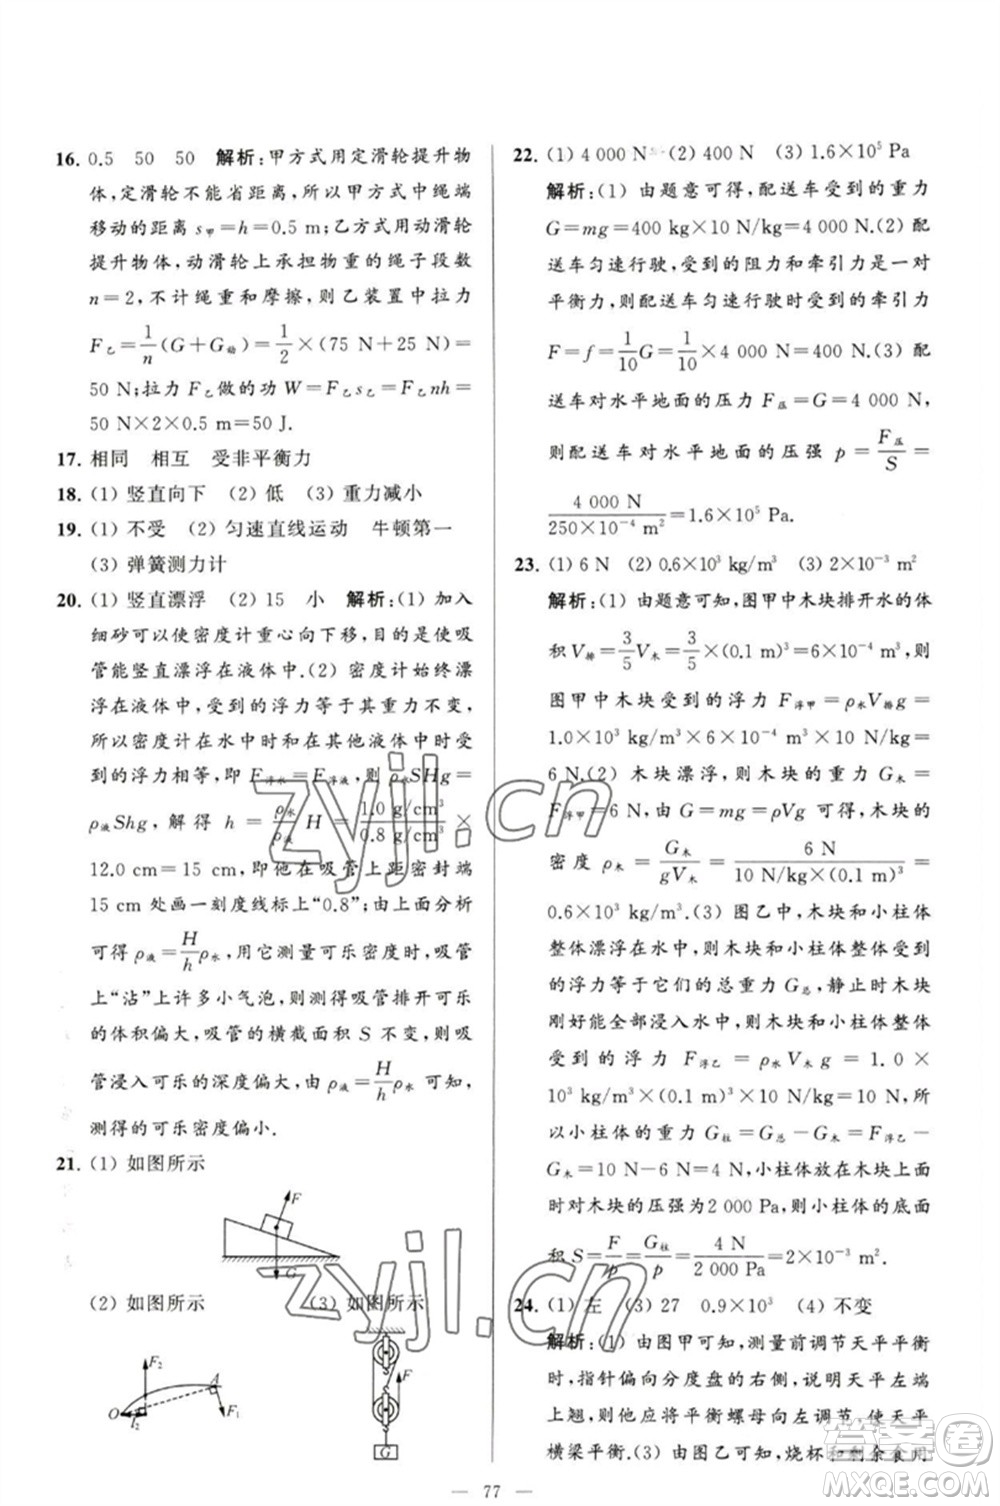 16. 0.5 50 50 解析:甲方式用定滑轮提升物
体,定滑轮不能省距离,所以甲方式中绳端
移动的距离 s甲=h=0.5 m;乙方式用动滑轮
提升物体,动滑轮上承担物重的绳子段数
n=2,不计绳重和摩擦,则乙装置中拉力
F乙=1/n(G+G动)=1/2×(75 N+25 N)=
50 N;拉力 F乙做的功 W=F乙s乙=F乙nh=
50 N×2×0.5 m=50 J.
17. 相同 相互 受非平衡力
18. (1) 竖直向下 (2) 低 (3) 重力减小
19. (1) 不受 (2) 匀速直线运动 牛顿第一
(3) 弹簧测力计
20. (1) 竖直漂浮 (2) 15 小 解析:(1) 加入
细砂可以使密度计重心向下移,目的是使吸
管能竖直漂浮在液体中.(2) 密度计始终漂
浮在液体中,受到的浮力等于其重力不变,
所以密度计在水中时和在其他液体中时受到
的浮力相等,即 F浮水=F浮液,则 ρ水SHg=
ρ液Shg,解得 h=ρ水/ρ液 H=1.0 g/cm³/0.8 g/cm³×
12.0 cm=15 cm,即他在吸管上距密封端
15 cm 处画一刻度线标上“0.8”;由上面分析
可得 ρ液=H/h ρ水,用它测量可乐密度时,吸管
上“沾”上许多小气泡,则测得吸管排开可乐
的体积偏大,吸管的横截面积 S 不变,则吸
管浸入可乐的深度偏大,由 ρ液=H/h ρ水 可知,
测得的可乐密度偏小.
21. (1) 如图所示
F
G
(2) 如图所示 (3) 如图所示
F₂
A
O
l₂
F₁
F
G
22. (1) 4 000 N (2) 400 N (3) 1.6×10⁵ Pa
解析:(1) 由题意可得,配送车受到的重力
G=mg=400 kg×10 N/kg=4 000 N.(2) 配
送车匀速行驶,受到的阻力和牵引力是一对
平衡力,则配送车匀速行驶时受到的牵引力
F=f=1/10 G=1/10×4 000 N=400 N.(3) 配
送车对水平地面的压力 F压=G=4 000 N,
则配送车对水平地面的压强 p=F压/S=
4 000 N/250×10⁻⁴ m²=1.6×10⁵ Pa.
23. (1) 6 N (2) 0.6×10³ kg/m³ (3) 2×10⁻³ m²
解析:(1) 由题意可知,图甲中木块排开水的体
积 V排=3/5 V木=3/5×(0.1 m)³=6×10⁻⁴ m³,
图甲中木块受到的浮力 F浮甲=ρ水V排g=
1.0×10³ kg/m³×6×10⁻⁴ m³×10 N/kg=
6 N.(2) 木块漂浮,木块的重力 G木=
F浮甲=6 N,由 G=mg=ρVg 可得,木块的
密度 ρ木=G木/gV木=6 N/10 N/kg×(0.1 m)³=
0.6×10³ kg/m³.(3) 图乙中,木块和小柱体
整体漂浮在水中,则木块和小柱体整体受到
的浮力等于它们的总重力 G总,静止时木块
刚好能全部浸入水中,则木块和小柱体整体
受到的浮力 F浮乙=ρ水V木g=1.0×
10³ kg/m³×(0.1 m)³×10 N/kg=10 N,所
以小柱体的重力 G柱=G总-G木=F浮乙-
G木=10 N-6 N=4 N,小柱体放在木块上面
时对木块的压强为2 000 Pa,则小柱体的底面
积 S=F/p=G柱/p=4 N/2 000 Pa=2×10⁻³ m².
24. (1) 左 (3) 27 0.9×10³ (4) 不变
解析:(1) 由图甲可知,测量前调节天平平衡
时,指针偏向分度盘的右侧,说明天平左端
上翘,则他应将平衡螺母向左调节,使天平
横梁平衡.(3) 由图乙可知,烧杯和剩余食用
— 77 —
zyjl.cn
zyjl.cn
答案圈
MXQE.COM